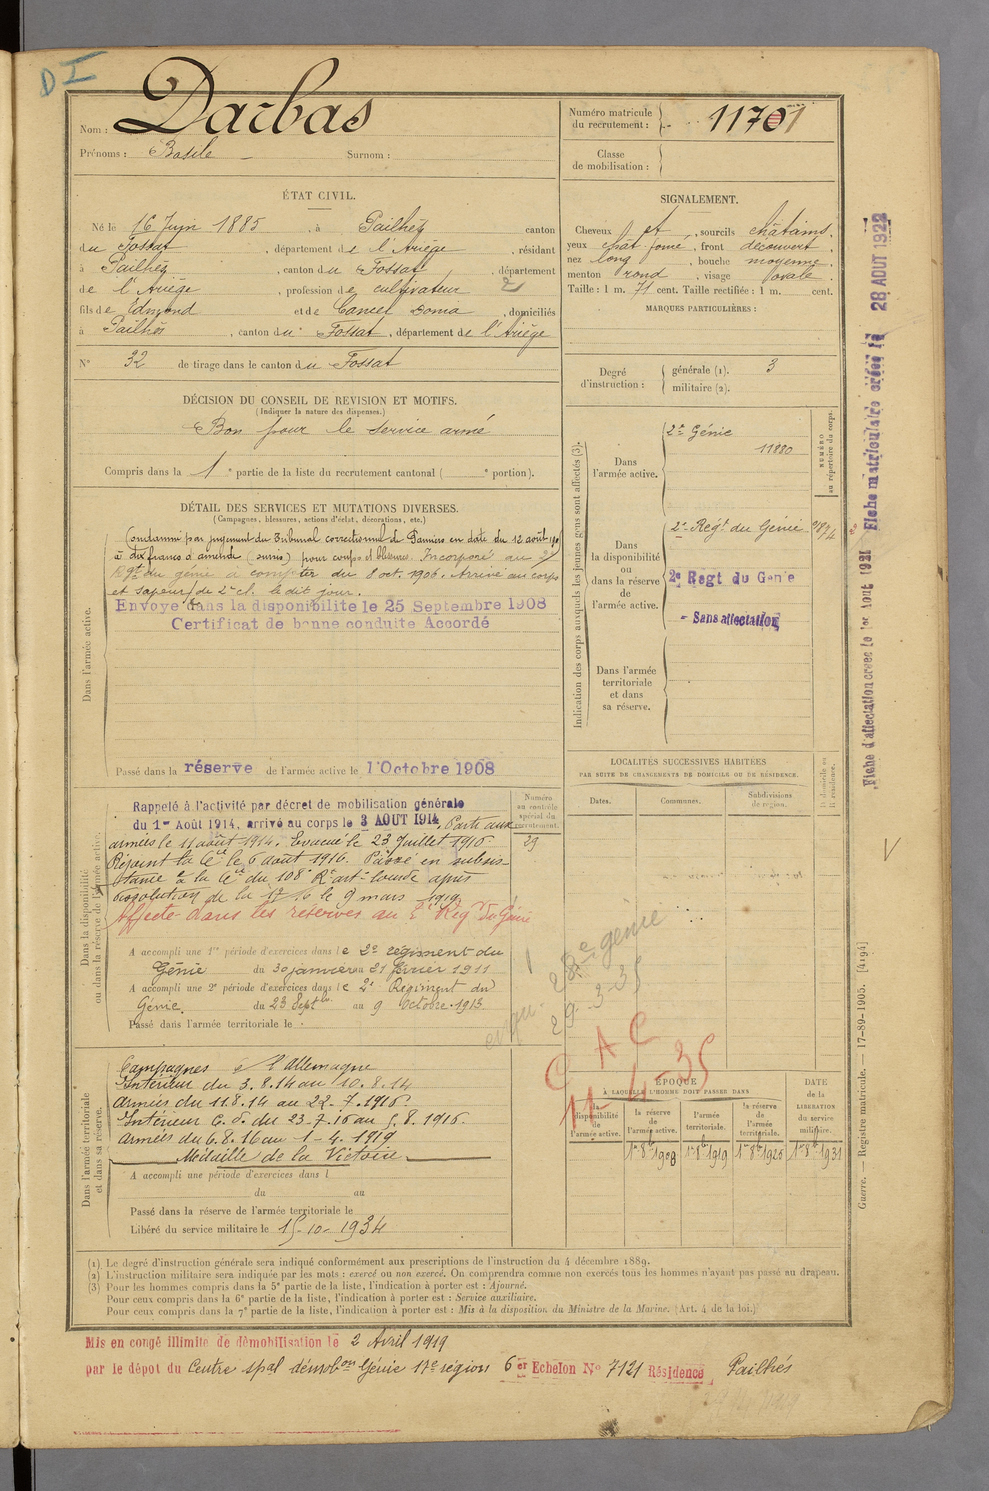 D I
Nom : Darbas
Prénoms : Basile Surnom :
Numéro matricule du recrutement : 1170
Classe de mobilisation :
ÉTAT CIVIL.
Né le 16 Juin 1885, à Pailhès canton
du Fossat, département de l'Ariège, résidant
à Pailhès, canton du Fossat, département
de l'Ariège, profession de cultivateur
fils de Edmond et de Cancel Doma, domiciliés
à Pailhès, canton du Fossat, département de l'Ariège
N° 32 de tirage dans le canton du Fossat
SIGNALEMENT.
Cheveux et, sourcils châtains,
yeux chat foncé, front découvert,
nez long, bouche moyenne,
menton rond, visage ovale.
Taille : 1 m. 71 cent. Taille rectifiée : 1 m. cent.
MARQUES PARTICULIÈRES :
Degré d'instruction : générale (1). 3
militaire (2).
DÉCISION DU CONSEIL DE REVISION ET MOTIFS.
(Indiquer la nature des dispenses.)
Bon pour le service armé
Compris dans la 1e partie de la liste du recrutement cantonal ( e portion).
DÉTAIL DES SERVICES ET MUTATIONS DIVERSES.
(Campagnes, blessures, actions d'éclat, décorations, etc.)
Dans l'armée active.
Condamné par jugement du Tribunal correctionnel de Pamiers en date du 12 août
à dix francs d'amende (sursis) pour coups et blessures. Incorporé au 2e
Régt du génie à compter du 8 oct. 1906. Arrivé au corps
et sapeur de 2e cl. le dit jour.
Envoyé dans la disponibilité le 25 Septembre 1908
Certificat de bonne conduite Accordé
Passé dans la réserve de l'armée active le 1 Octobre 1908
Indication des corps auxquels les jeunes gens sont affectés (3).
NUMÉRO au répertoire du corps.
Dans l'armée active.
2e Génie
11880
Dans la disponibilité ou dans la réserve de l'armée active.
2e Régt du Génie
2e Regt du Genie
- Sans affectation
Dans l'armée territoriale et dans sa réserve.
LOCALITÉS SUCCESSIVES HABITÉES
PAR SUITE DE CHANGEMENTS DE DOMICILE OU DE RÉSIDENCE.
Dates. Communes. Subdivisions de région. D domicile ou R résidence.
Dans la disponibilité ou dans la réserve de l'armée active.
Numéro au contrôle spécial du recrutement.
29
Rappelé à l'activité par décret de mobilisation générale
du 1er Août 1914, arrivé au corps le 3 AOUT 1914. Parti aux
armées le 11 août 1914. Evacué le 23 Juillet 1916.
Rejoint la Cie le 6 août 1916. Passé en subsis-
tance à la Cie du 108e Rt art. lourde après
dissolution de la le 9 mars 1919.
Affecté dans les réserves au 2e Rég du Génie
A accompli une 1re période d'exercices dans le 2e régiment du
Génie du 30 janvier au 21 février 1911
A accompli une 2e période d'exercices dans le 2e Régiment du
Génie. du 23 Septbre au 9 Octobre 1913
Passé dans l'armée territoriale le
28e génie
29-3-35
C A C
11-4-35
Dans l'armée territoriale et dans sa réserve.
Campagnes c/ l'Allemagne
Intérieur du 3.8.14 au 10.8.14
Armées du 11.8.14 au 22.7.1916.
Intérieur C.d. du 23.7.16 au 5.8.1916.
Armées du 6.8.16 au 1-4.1919
Médaille de la Victoire
A accompli une période d'exercices dans l
du au
Passé dans la réserve de l'armée territoriale le
Libéré du service militaire le 15-10-1934
ÉPOQUE
À LAQUELLE L'HOMME DOIT PASSER DANS
la disponibilité de l'armée active. la réserve de l'armée active. l'armée territoriale. la réserve de l'armée territoriale.
DATE de la LIBÉRATION du service militaire.
1er 8bre 1908 1er 8bre 1919 1er 8bre 1925 1er 8bre 1931
(1) Le degré d'instruction générale sera indiqué conformément aux prescriptions de l'instruction du 4 décembre 1889.
(2) L'instruction militaire sera indiquée par les mots : exercé ou non exercé. On comprendra comme non exercés tous les hommes n'ayant pas passé au drapeau.
(3) Pour les hommes compris dans la 5e partie de la liste, l'indication à porter est : Ajourné.
Pour ceux compris dans la 6e partie de la liste, l'indication à porter est : Service auxiliaire.
Pour ceux compris dans la 7e partie de la liste, l'indication à porter est : Mis à la disposition du Ministre de la Marine. (Art. 4 de la loi.)
Mis en congé illimité de démobilisation le 2 Avril 1919
par le dépôt du Centre spal démobon Génie 17e région 6er Echelon N° 7121 Résidence Pailhès
Fiche d'affectation créée le 1er Aout 1921 Fiche matriculaire créée le 28 AOUT 1922
Guerre. — Registre matricule. — 17-89-1905. [4194]